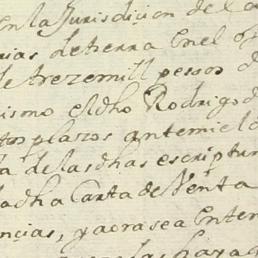 en la Jurisdicion del
rias de tierra en el
de trezemill pessos d
ismo el dho Rodrigo d
tos plazos antemi el
a de las dhas escriptur
la dha Carta de Venta
ncias, y aora sea Enter